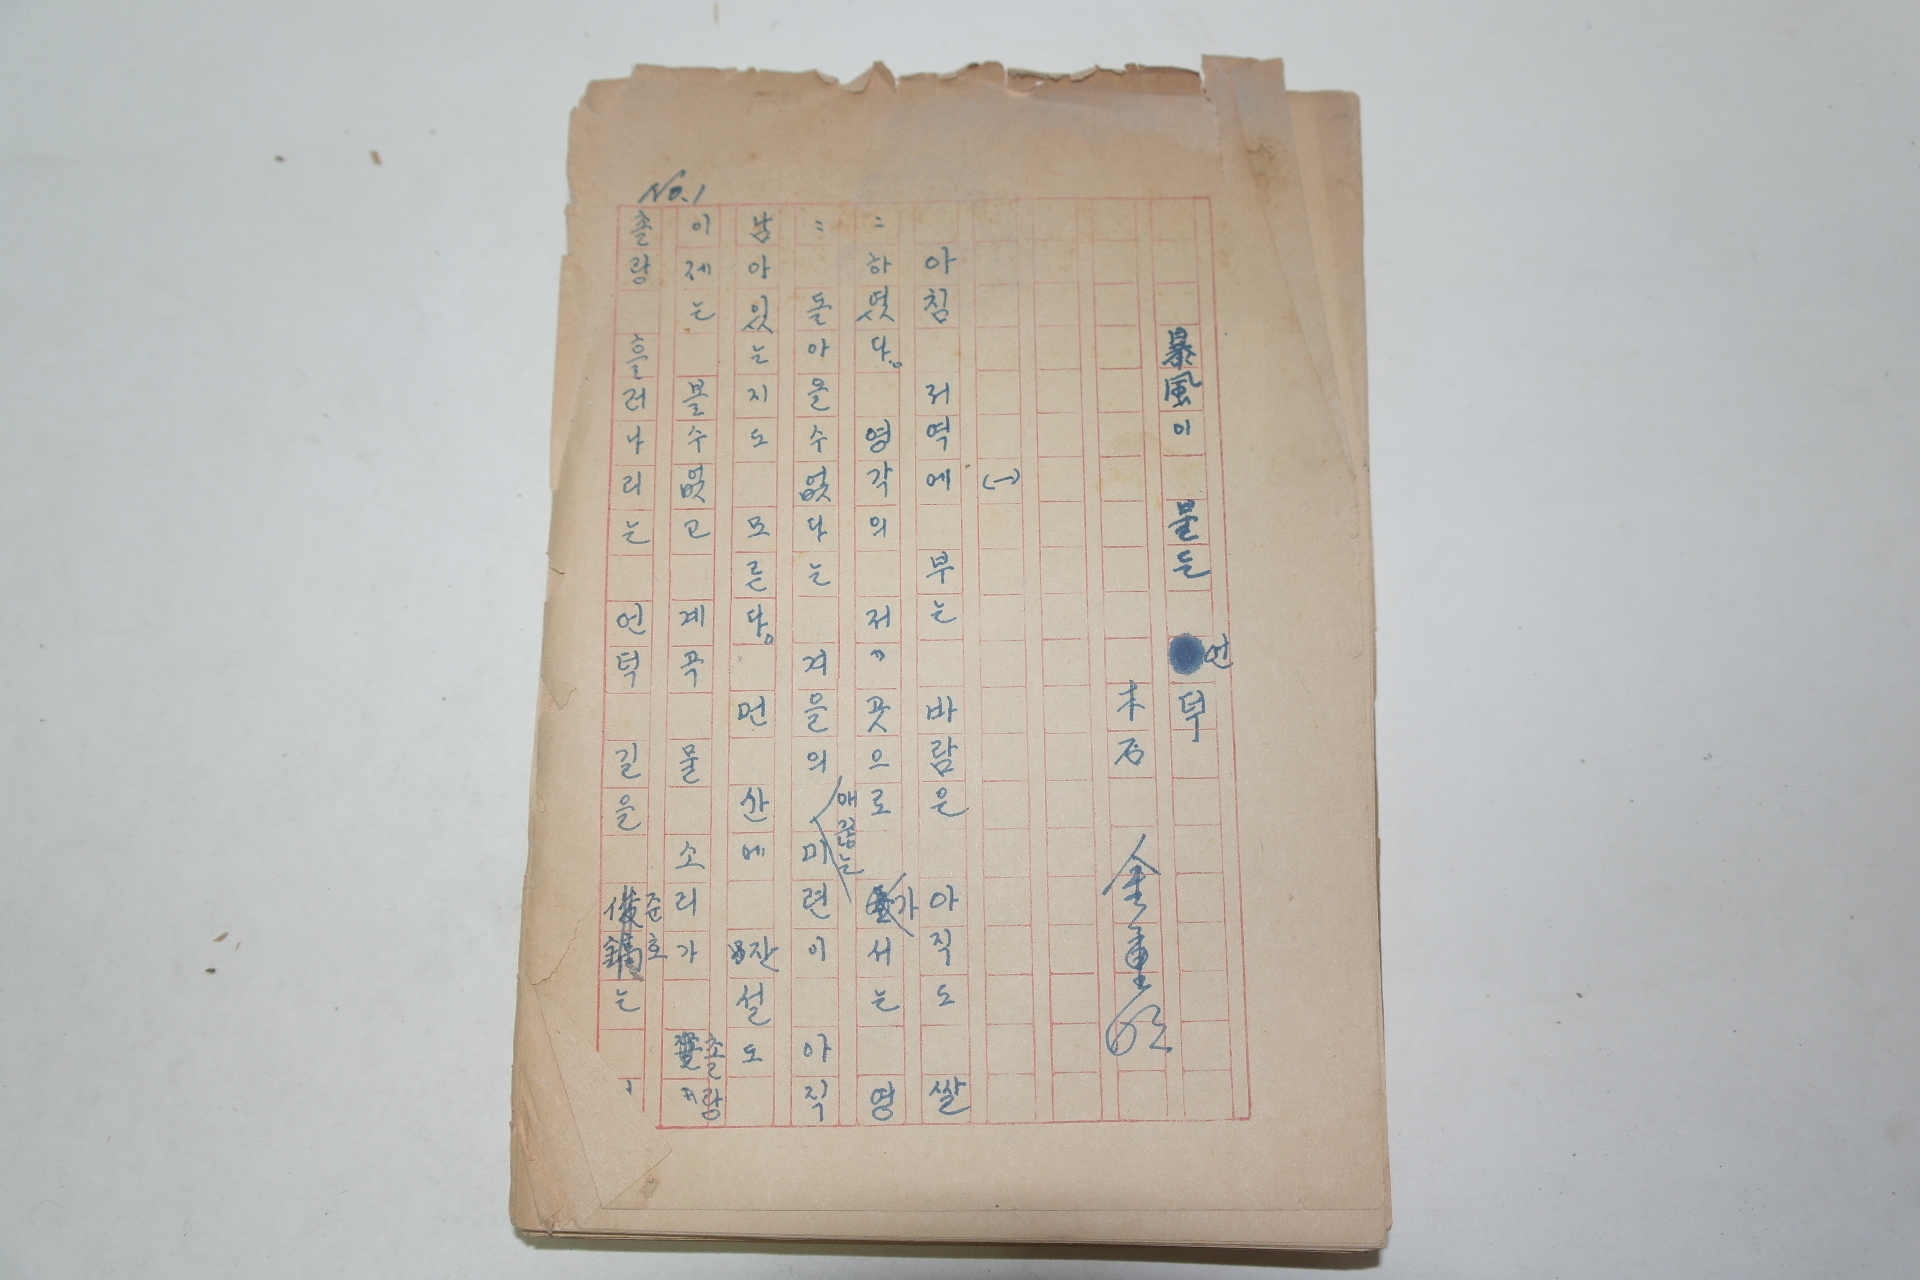 No.1
暴風이 불든 언덕
木石 金重
(一)
아침 저역에 부는 바람은 아직도 쌀
〃하엿다。 영각의 저〃곳으로 가서는 영
〃 돌아올수없다는 겨을의 미련이 아직
남아있는지도 모른다。 먼 산에 잔설도
이제는 볼수없고 계곡 물 소리가 촐랑
촐랑 흘러나리는 언덕 길을 준호는